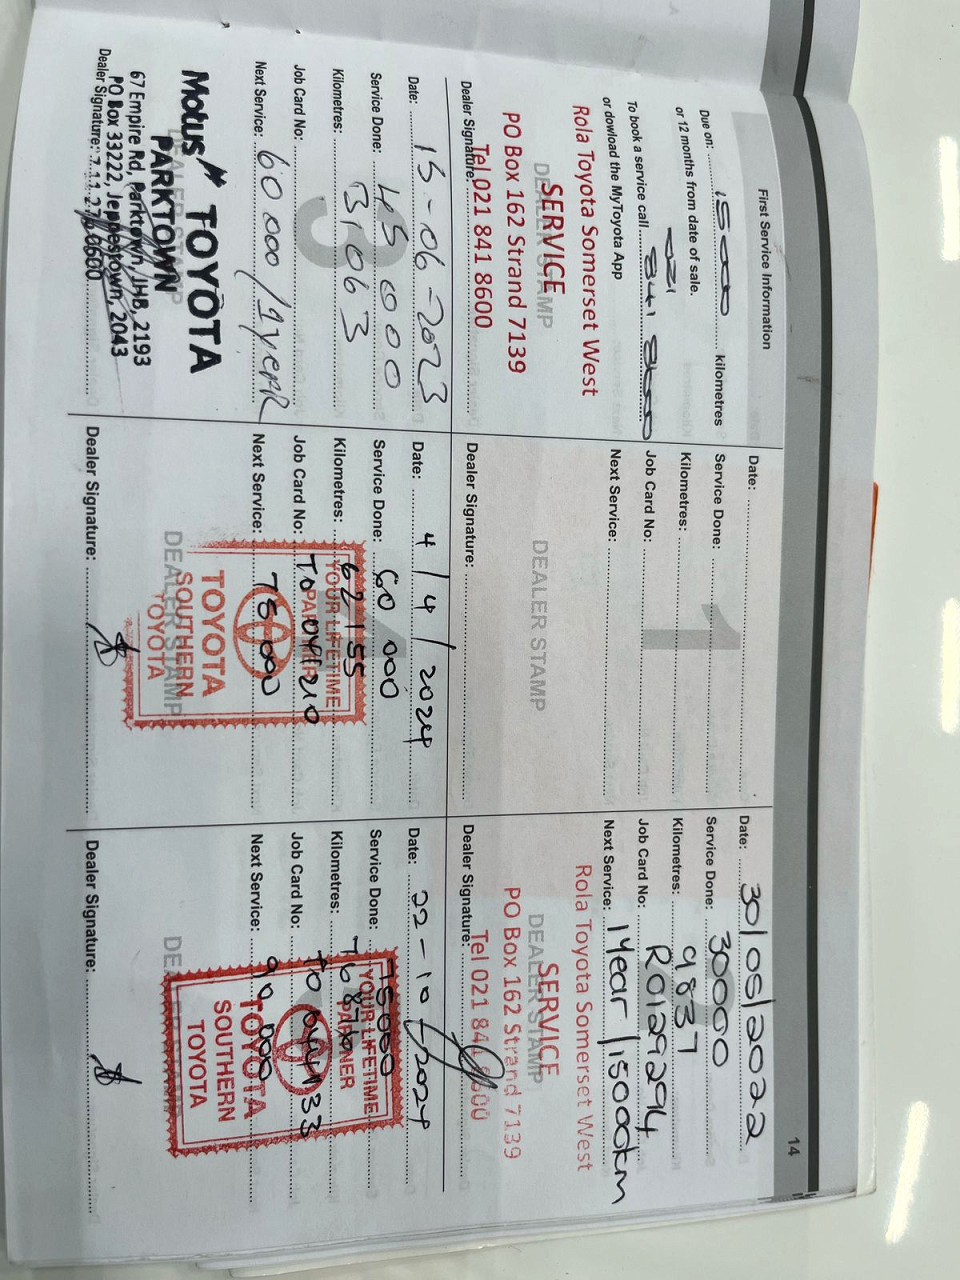 14
First Service Information
Due on: 15000 kilometres
or 12 months from date of sale.
To book a service call 021 841 8600
or dowload the MyToyota App
Rola Toyota Somerset West
SERVICE
DEALER STAMP
PO Box 162 Strand 7139
Tel 021 841 8600
Dealer Signature:
1
Date:
Service Done:
Kilometres:
Job Card No:
Next Service:
DEALER STAMP
Dealer Signature:
Date: 30/05/2022
Service Done: 30000
Kilometres: 9837
Job Card No: R0129294
Next Service: 1Year/15000km
Rola Toyota Somerset West
SERVICE
DEALER STAMP
PO Box 162 Strand 7139
Tel 021 841 8600
Dealer Signature:
3
Date: 15-06-2023
Service Done: 45000
Kilometres: 31063
Job Card No:
Next Service: 60 000/1yeaR
Motus TOYOTA
PARKTOWN
67 Empire Rd, Parktown, JHB, 2193
PO Box 33222, Jeppestown, 2043
Dealer Signature:
Date: 4/4/2024
Service Done: 60 000
Kilometres: 62155
Job Card No:
Next Service: 75000
YOUR LIFETIME
PARTNER
TOYOTA
SOUTHERN
TOYOTA
DEALER STAMP
Dealer Signature:
Date: 22-10-2024
Service Done: 75000
Kilometres:
Job Card No:
Next Service: 90 000
YOUR LIFETIME
PARTNER
TOYOTA
SOUTHERN
TOYOTA
Dealer Signature: